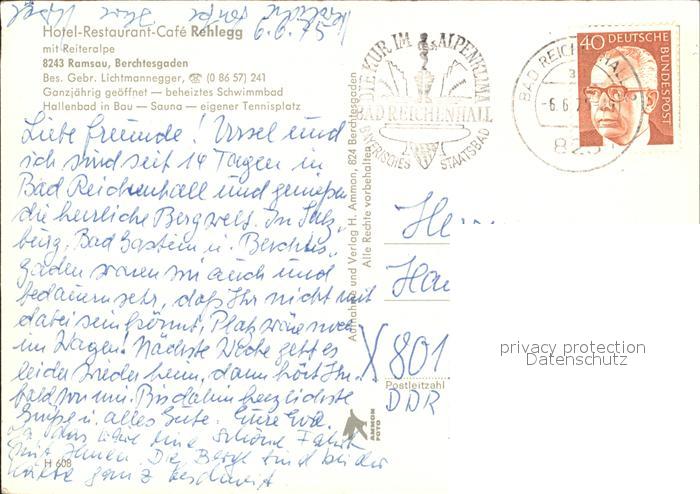 6.6.75
Hotel-Restaurant-Café Rehlegg
mit Reiteralpe
8243 Ramsau, Berchtesgaden
Bes. Gebr. Lichtmannegger, ☎ (0 86 57) 241
Ganzjährig geöffnet — beheiztes Schwimmbad
Hallenbad in Bau — Sauna — eigener Tennisplatz
Liebe Freunde! Ursel und
ich sind seit 14 Tagen in
Bad Reichenhall und genießen
die herrliche Bergwelt. In Salz-
burg, Bad Gastein u. Berchtes-
gaden waren wir auch und
bedauern sehr, daß Ihr nicht mit
dabei sein könnt, Platz wäre noch
im Wagen! Nächste Woche geht es
leider wieder heim, dann hört Ihr
bald von mir. Bis dahin herzlichste
Grüße u. alles Gute. Eure Eva.
schöne Fahrt
mit Ihnen. Die Berge sind bei der
ganz
H 608
Aufnahme und Verlag H. Ammon, 824 Berchtesgaden
Alle Rechte vorbehalten
AMMON
FOTO
DIE KUR IM ALPENKLIMA
BAD REICHENHALL
BAYERISCHES STAATSBAD
BAD REICHENHALL
-6.6.75
40 DEUTSCHE
BUNDESPOST
X 801
Postleitzahl
DDR
privacy protection
Datenschutz